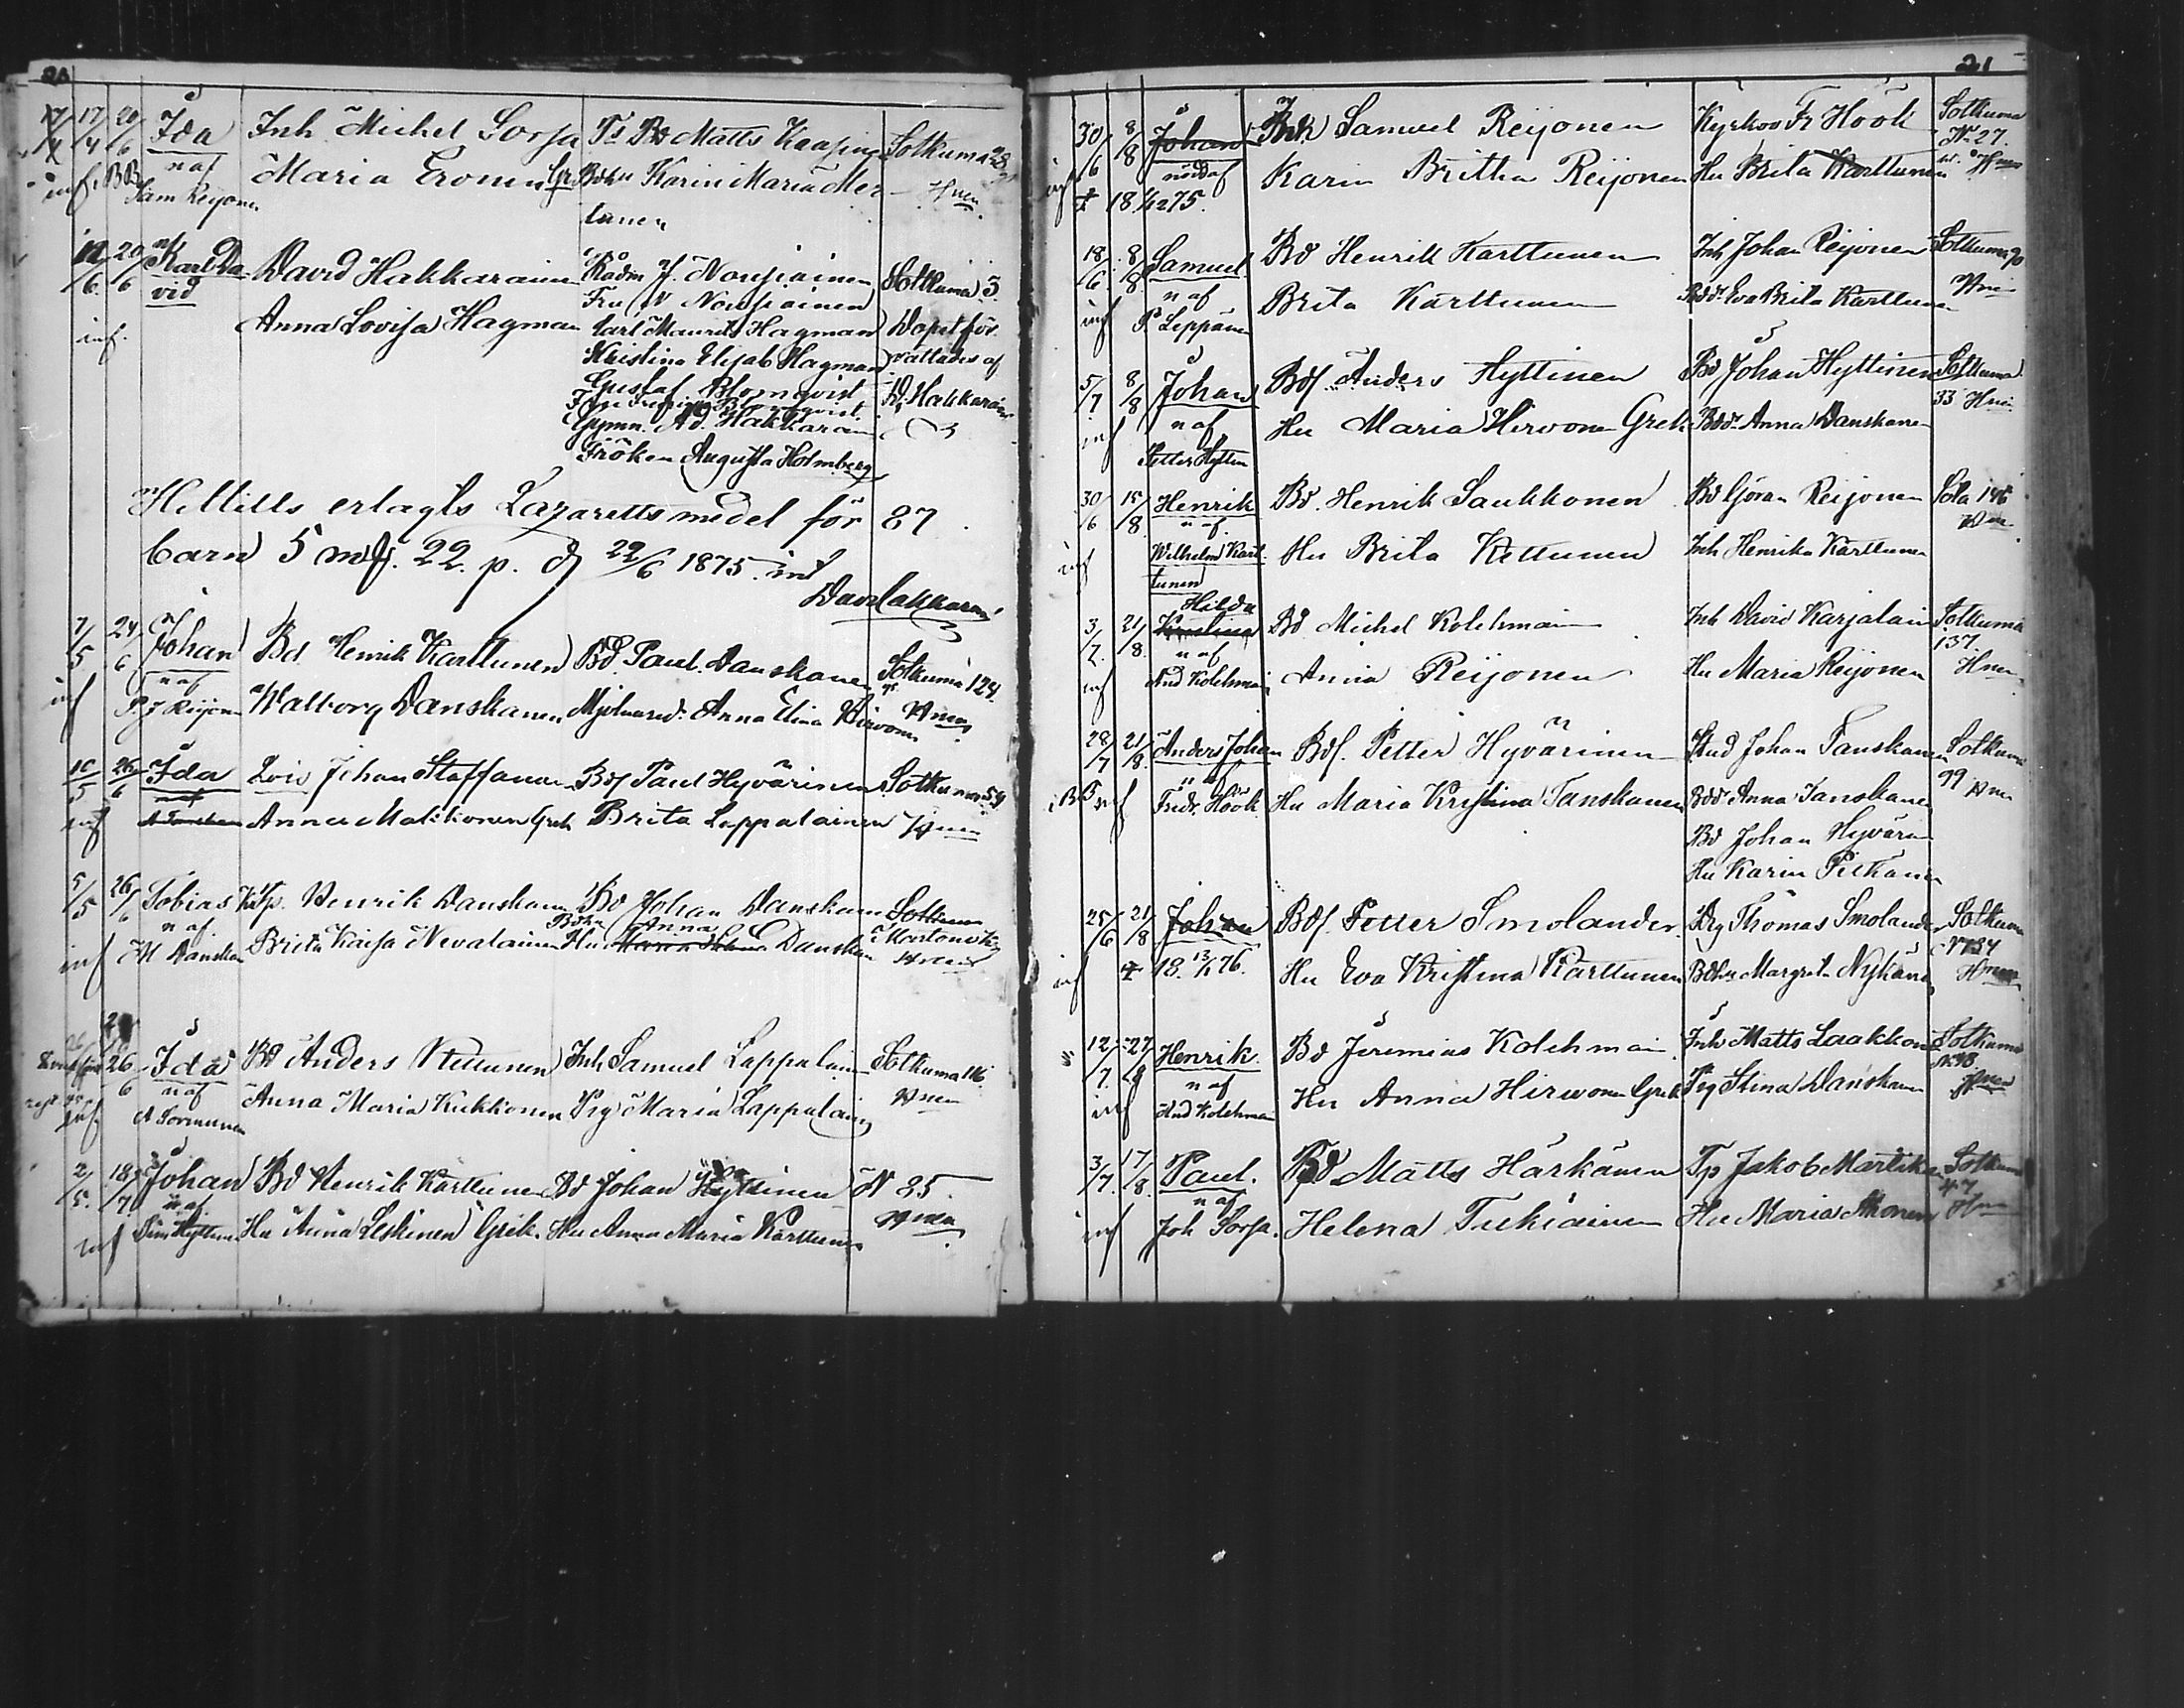 20
17/4 17/4 20/6 Ida Inh Michel Sorsa Ts Bd Matts Kaasinen Sotkuma 28
inf. BB n af Maria Eronen Gr. Bdhu Karin Maria Mer- Hnen
Sam Reijonen tanen
12/6 20/6 Karl Da- David Hakkarainen Rådm J. Nousiainen Sotkuma 3.
vid Fru W Nousiainen
inf. Anna Lovisa Hagman Carl Maurits Hagman Dopet för-
Kristina Elisab Hagman rättades af
Gustaf Blomqvist D. Hakkarainen
Blomqvist
Gymn. Ad. Hakkarainen
Fröken Augusta Holmberg
Hittills erlagts Lazarettsmedel för 87
barn 5 mk. 22. p. d 22/6 1875.
Dav Hakkarainen
7/5 24/6 Johan Bd Henrik Karttunen Bd Paul Danskanen Sotkuma 124.
inf n af
P. J Reijonen Walborg Danskanen Anna Elina Hirvonen Hnen
10/5 26/6 Ida Lois Johan Staffanan Bdf Paul Hyvärinen Sotkuma 54
inf n af
Anna Makkonen Grek Brita Lappalainen Hnen
5/5 26/6 Tobias Henrik Danskanen Bd Johan Danskanen Sotkuma
n af. Bdhu Anna
inf M Danskan Brita Kaisa Nevalainen Hu Danskan
Hnen
26/6 Ida Bd Anders Kettunen Inh Samuel Lappalain Sotkuma 116
n af Hnen
inf A Tormunen Anna Maria Kukkonen Pig Maria Lappalain
2/5. 18/7 Johan Bd Henrik Karttunen Bd Johan Hyttinen N 85.
n af. Hnen
inf Sim Hyttinen Hu Anna Leskinen Grek. Hu Anna Maria Karttunen
21
30/6 8/8 Johan Samuel Reijonen Kyrkov Fr Höök Sotkuma
N. 27.
inf född af Karin Britha Reijonen Hu Brita Karttunen Hnen
† 18 75.
18/6 8/8 Samuel Bd Henrik Karttunen Inh Johan Reijonen Sotkuma 90
n af Hnen
inf P Leppänen Brita Karttunen Bdd. Eva Brita Karttunen
5/7 8/8 Johan Bdf Anders Hyttinen Bd Johan Hyttinen Sotkuma
33 Hnen
inf n af Hu Maria Hirvonen Grek Bdd. Anna Danskanen
Petter Hytten
30/6 15/8 Henrik Bd. Henrik Saukkonen Bd Göran Reijonen Sotka 146
n af Hnen
inf Wilhelm Kart- Hu Brita Kettunen Inh Henrika Karttunen
tunen
Hilda
3/7. 21/8. Kristina Bd Michel Kolehmain Inh David Karjalain Sotkuma
n af 137
inf And Kolehmain Anna Reijonen Hu Maria Reijonen Hnen
28/7 21/8. Anders Johan Bdf. Petter Hyvärinen Stud Johan Tanskanen Sotkuma
n af 99 Hnen
BB inf Fredr. Höök Hu Maria Kristina Tanskanen Bdd. Anna Tanskanen
Bd Johan Hyvärin
Hu Karin Pitkänen
25/6 21/8 Johan Bdf. Petter Smolander. Drg Thomas Smolander Sotkuma
N 134
inf † 18. 13/1 76. Hu Eva Kristina Karttunen Bdhu Margreta Nykänen Hnen
12/7. 27/8 Henrik. Bd Jeremias Kolehmain Inh Matts Laakkonen Sotkuma
n af Hnen
inf And Kolehmain Hu Anna Hirvonen Grek Pig Stina Danskanen
3/7. 17/8. Paul. Bd Matts Härkänen Tp Jakob Martika Sotkuma
n af 47
inf Joh Sorsa. Helena Tukiainen Hu Maria Ahonen Hnen